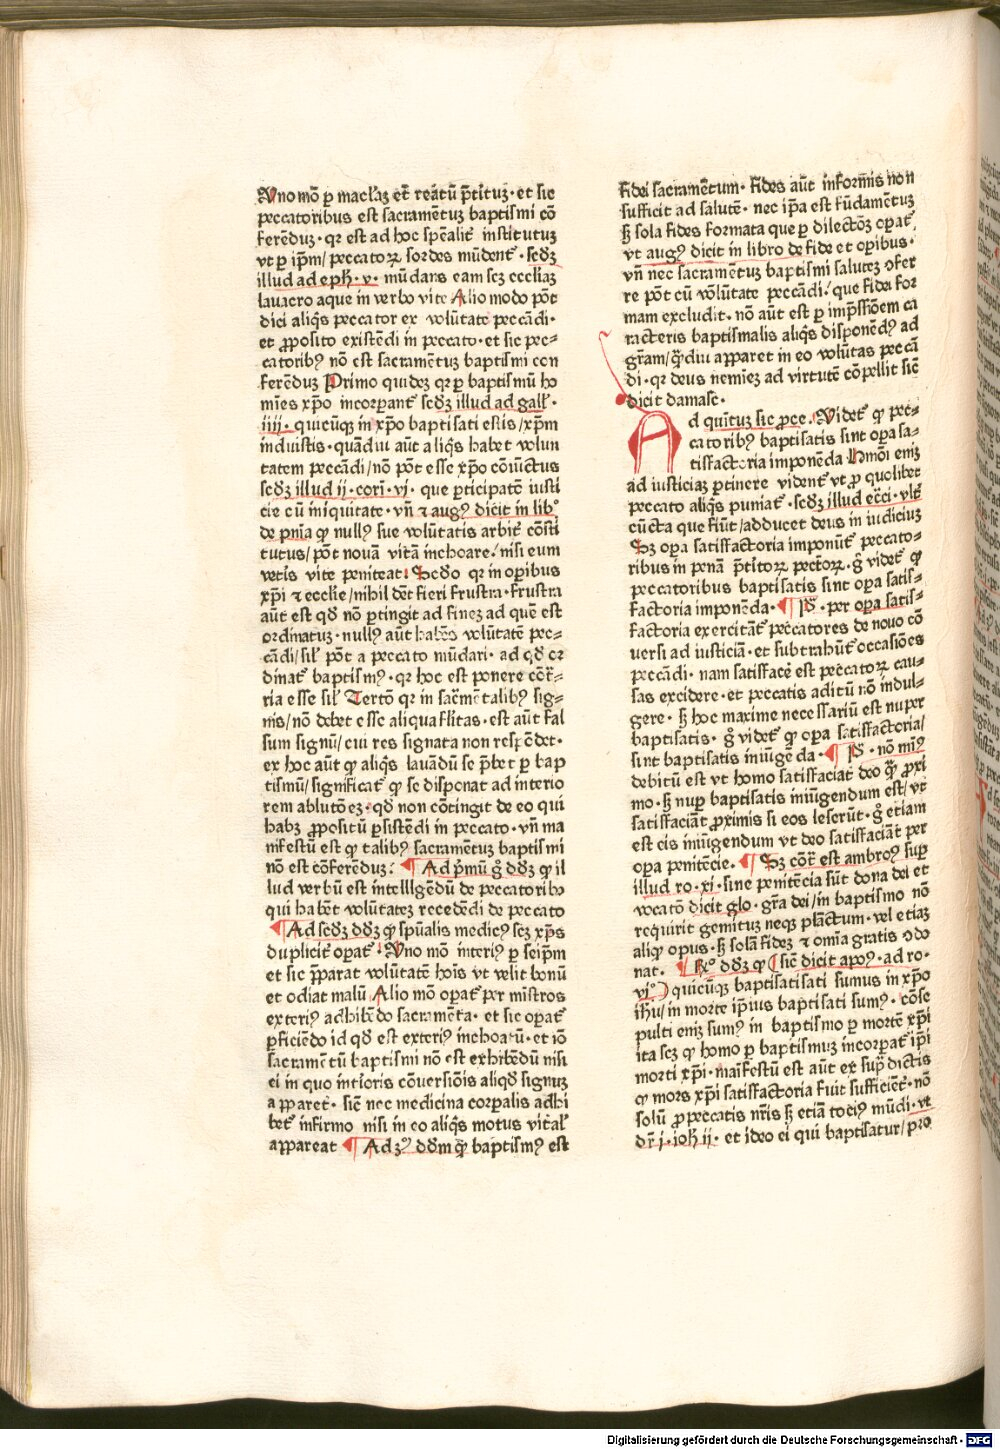 Uno mō ꝑ macl̓aꝫ et̄ reātū p̄tituꝫ · et sic
peccatoribus est sacramētuꝫ baptismi cō
ferēduꝫ · qr est ad hoc spēalit̓ institutuꝫ
vt ꝑ ip̄m / peccatoꝝ sordes mūdent̓ · scdꝫ
illud ad eph · v · mūdans eam scꝫ eccl̓iaꝫ
lauacro aque in verbo vite Alio modo pōt
dici aliq̄s peccator ex volūtate peccādi ·
et ꝓposito existēdi in peccato · et sic pec⸗
catoribꝰ nō est sacramētuꝫ baptismi con
ferēduꝫ Primo quideꝫ qr ꝑ baptismū ho
mīes xp̄o incorporant̓ scdꝫ illud ad gall̓ ·
iiij · quicūqꝫ in xp̄o baptisati estis / xp̄m
induistis · quādiu aūt aliq̄s habet volun
tatem peccādi / nō pōt esse xp̄o cōiūctus
scdꝫ illud ij · cori̓ · vj · que ꝑticipatō iusti
cie cū iniquitate · vn̄ ⁊ augꝰ dicit in libº
de pn̄ia ꝙ nullꝰ sue volūtatis arbit̓ cōsti
tutus / pōt nouā vitā inchoare / nisi eum
veteris vite peniteat · Scd̄o qr in oꝑibus
xp̄i ⁊ ecclie / nihil deb̓t fieri frustra · frustra
aūt est qd̄ nō ꝑtingit ad fineꝫ ad quē est
ordinatuꝫ · nullꝰ aūt habēs volūtatē pec⸗
cādi / sil̓ pōt a peccato mūdari · ad qd̄ or
dinat̓ baptismꝰ · qr hoc est ponere cōt̄r⸗
ria esse sil̓ Tertō qr in sac̄rmētalibꝰ sig⸗
nis / nō debet esse aliqua fl̄itas · est aūt fal
sum signū / cui res signata non respōdet ·
ex hoc aūt ꝙ aliq̄s lauādū se p̄bet ꝑ bap
tismū / significat̓ ꝙ se disponat ad interio
rem ablutōeꝫ · qd̄ non cōtingit de eo qui
habꝫ ꝓpositū ꝑsistēdi in peccato · vn̄ ma
nifestū est ꝙ talibꝰ sacramētuꝫ baptismi
nō est cōferēduꝫ · ¶ Ad p̄mū g̊ dd̄ꝫ ꝙ il
lud verbū est intelligēdū de peccatoribꝰ
qui habēt volūtateꝫ recedēdi de peccato
¶ Ad scdꝫ dd̄ꝫ ꝙ sp̄ualis medicꝰ scꝫ xp̄s
dupliciter oꝑat̓ · Uno mō interiꝰ ꝑ seip̄m
et sic p̄ꝑarat volūtatē hoīs vt velit bonū
et odiat malū Alio mō oꝑat̓ per mīstros
exteriꝰ adhibēdo sacramēta · et sic oꝑat̓
ꝑficiēdo id qd̄ est exteriꝰ inchoatū · et iō
sacramētū baptismi nō est exhibēdū nisi
ei in quo īterioris cōuersiōis aliqd̄ signuꝫ
apparet · sic̄ nec medicina corꝑalis adhi
bet̓ infirmo nisi in eo aliq̄s motus vital̓
appareat ¶ Ad 3ꝰ dd̄m ꝙ baptismꝰ est
fidei sacramētum · fides aūt informis non
sufficit ad salutē · nec ip̄a est fūdamētuꝫ
s̄ sola fides formata que ꝑ dilectōꝫ oꝑat̓
vt augꝰ dicit in libro de fide et oꝑibus ·
vn̄ nec sacramētuꝫ baptismi saluteꝫ ꝯfer
re pōt cū volūtate peccādi / que fidei for
mam excludit · nō aūt est ꝑ imp̄ssiōem ca
racteris baptismalis aliq̄s disponēdꝰ ad
gr̄am / q̄diu apparet in eo volūtas peccā
di · qr deus nemīeꝫ ad virtutē cōpellit sic̄
dicit damasc ·
Ad quītuꝫ sic ꝓce · Videt̓ ꝙ pec⸗
catoribꝰ baptisatis sint oꝑa sa⸗
tisfactoria imponēda Hmōi eniꝫ
ad iusticiaꝫ ꝑtinere vident̓ vt ꝓ quolibet
peccato aliq̄s puniat̓ · scdꝫ illud ecc̄i · vlt̓
cūcta que fiūt / adducet deus in iudiciuꝫ
Sꝫ oꝑa satisfactoria imponūt̓ peccato⸗
ribus in penā p̄titoꝝ pectōꝝ · g̊ videt̓ ꝙ
peccatoribus baptisatis sint oꝑa satis⸗
factoria imponēda · ¶ P̄ · per oꝑa satis⸗
factoria exercitāt̓ peccatores de nouo cō
uersi ad iusticiā · et subtrahūt̓ occasiōes
peccādi · nam satisfac̄e est peccatoꝝ cau⸗
sas excidere · et peccatis aditū nō indul⸗
gere · s̄ hoc maxime necessariū est nuper
baptisatis · g̊ videt̓ ꝙ oꝑa satisfactoria /
sint baptisatis iniūgēda · ¶ P̄ · nō minꝰ
debitū est vt homo satisfaciat deo q̄ꝫ ꝓxi
mo · s̄ nuꝑ baptisatis iniūgendum est / vt
satisfaciāt ꝓximis si eos leserūt · g̊ etiam
est eis iniūgendum vt deo satisfaciāt per
oꝑa penitēcie · ¶ Sꝫ cōt̄ est ambroꝰ suꝑ
illud ro · xi · sine penitēcia sūt dona dei et
vocatō dicit glo · gr̄a dei / in baptismo nō
requirit gemituꝫ neqꝫ plāctum · vel etiaꝫ
aliq̄ opus · s̄ solā fideꝫ ⁊ omīa gratis ꝯdo
nat · ¶ Rº dd̄ꝫ ꝙ ( sic̄ dicit apoꝰ · ad ro ·
vjº ) quicūqꝫ baptisati sumus in xp̄o
ih̄u / in morte ip̄ius baptisati sumꝰ · cōse
pulti eniꝫ sumꝰ in baptismo ꝑ mortē xp̄i
ita scꝫ ꝙ homo ꝑ baptismuꝫ incorꝑat̓ ip̄i
morti xp̄i · maīfestū est aūt ex supᵃdictis
ꝙ mors xp̄i satisfactoria fuit sufficiēt̓ · nō
solū ꝓ peccatis nr̄is s̄ etiā tociꝰ mūdi · vt
dr̄ j · ioh̄ ij · et ideo ei qui baptisatur / pro
Digitalisierung gefördert durch die Deutsche Forschungsgemeinschaft - DFG